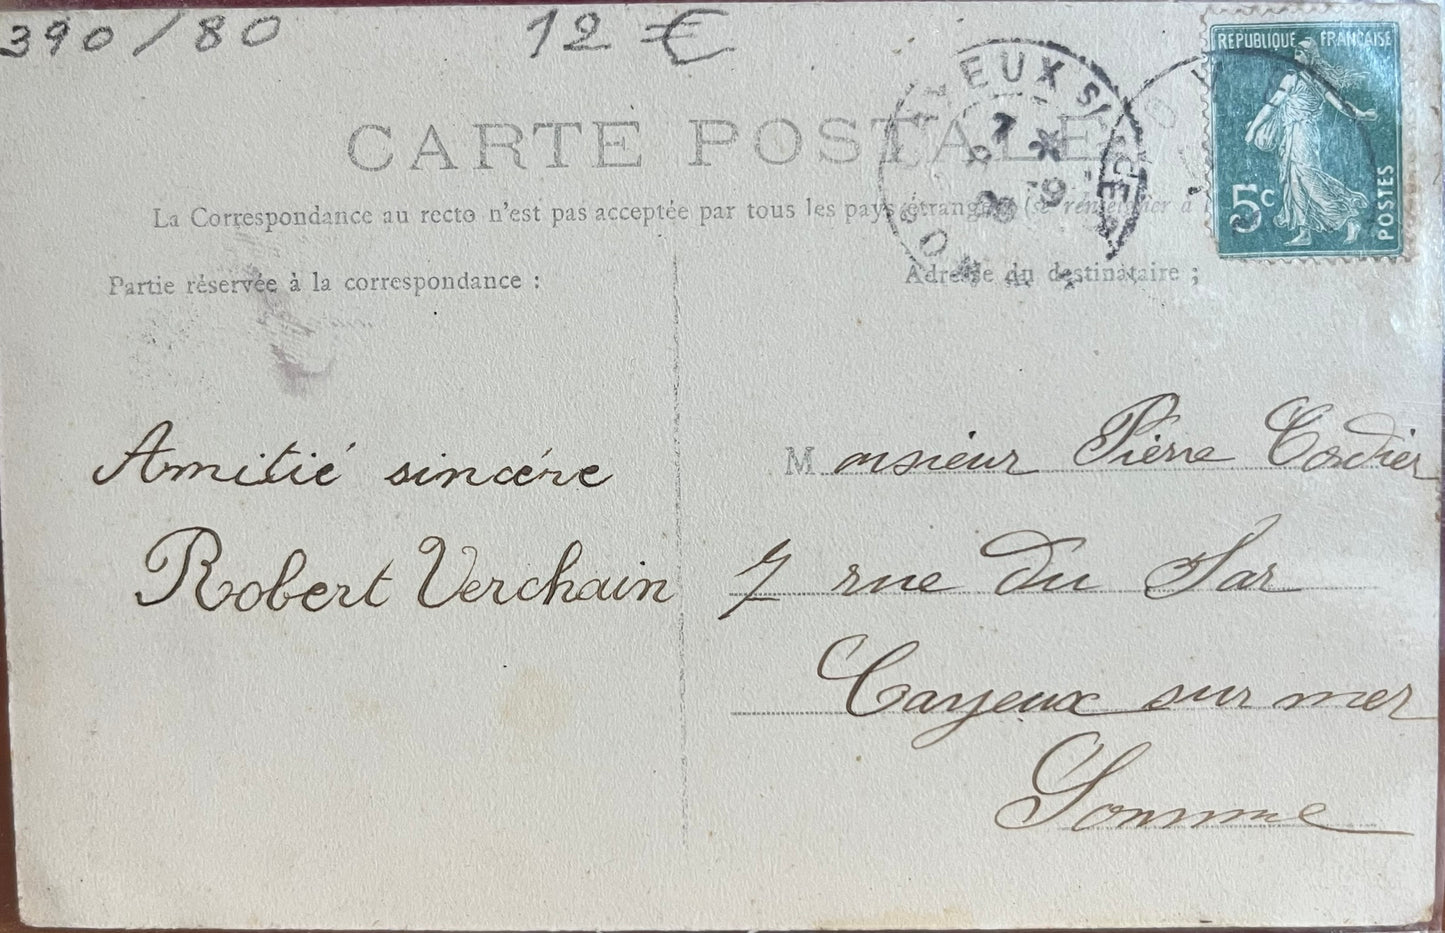 390/80 12 €
CARTE POSTALE
La Correspondance au recto n'est pas acceptée par tous les pays étrangers (se renseigner à
Partie réservée à la correspondance :
Adresse du destinataire ;
REPUBLIQUE FRANÇAISE
5c
POSTES
Amitié sincére
Robert Verchain
Monsieur Pierre Cordier
7 rue du Sar
Cayeux sur mer
Somme